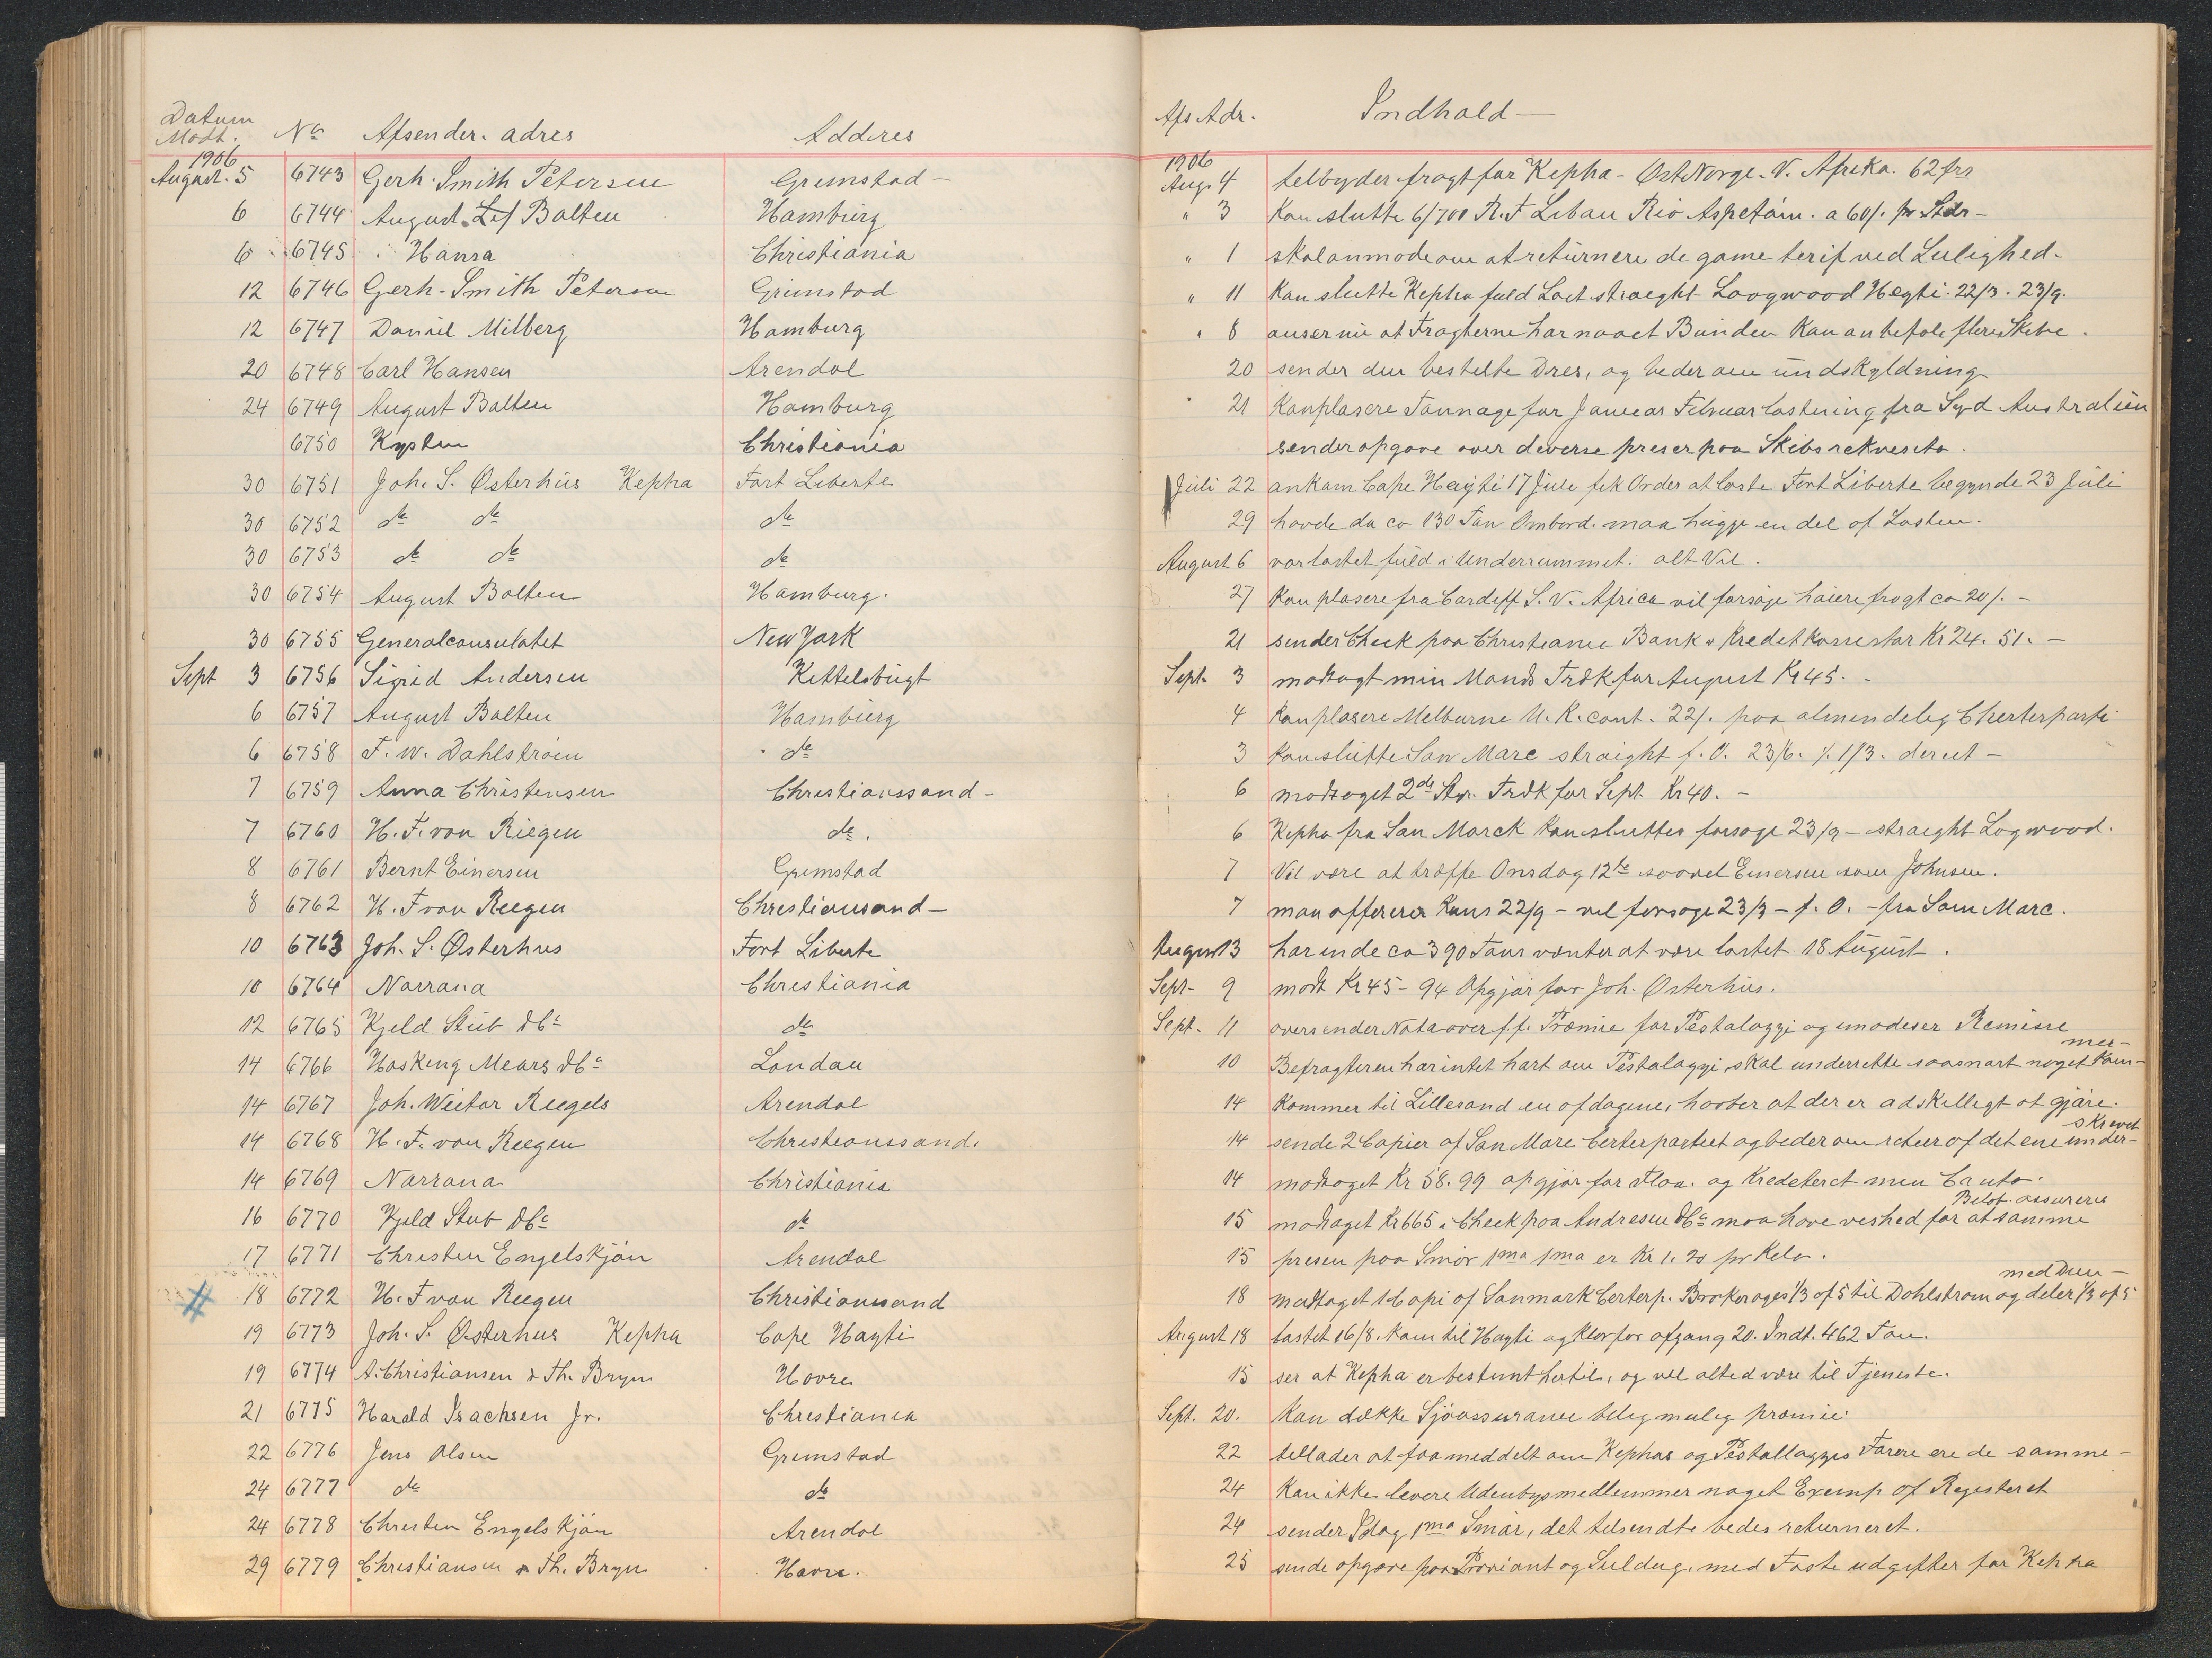 Datum
Modt. No Afsender. adres Adderes
1906
August. 5 6743 Gerh. Smith Petersen Grimstad -
6 6744 August Bolten Hamburg
6 6745 Hansa Christiania
12 6746 Gerh. Smith Petersen Grimstad
12 6747 Daniel Milberg Hamburg
20 6748 Carl Hansen Arendal
24 6749 August Bolten Hamburg
6750 Kysten Christiania
30 6751 Joh. S. Østerhus Kepha Fort Liberte
30 6752 do do do
30 6753 do do do
30 6754 August Bolten Hamburg.
30 6755 Generalconsulatet New York
Sept 3 6756 Sigrid Andersen Kittelsbugt
6 6757 August Bolten Hamburg
6 6758 F. W. Dahlstrøm " do
7 6759 Anna Christensen Christianssand -
7 6760 H. F. von Riegen do.
8 6761 Bernt Einersen Grimstad
8 6762 H. F von Riegen Christiansand -
10 6763 Joh. S. Østerhus Fort Liberte
10 6764 Norrøna Christiania
12 6765 Kjeld Stub & Co do
14 6766 Hosking Mears & Co London
14 6767 Joh. Riegels Arendal
14 6768 H. F. von Riegen Christianssand.
14 6769 Norrøna Christiania
16 6770 Kjeld Stub & Co do
17 6771 Christen Engelskjøn Arendal
# 18 6772 H. F von Riegen Christiansand
19 6773 Joh. S. Østerhus Kepha Cape Hayti
19 6774 A. Christiansen & Th. Bryn Havre
21 6775 Harald Isachsen Jr. Christiania
22 6776 Jens Olsen Grimstad
24 6777 do do
24 6778 Christen Engelskjøn Arendal
29 6779 Christiansen & Th. Bryn Havre.
Afs Adr. Indhold —
1906
Aug. 4 telbyder fragt for Kepha - Øst Norge - V. Afrika. 62 frs
" 3 Kan slutte 6/700 R. T Libau Rio a 60/. pr Stdr -
" 1 skal anmode om at returnere de game terif ved Leilighed -
" 11 Kan slutte Kepha fuld Last straight Loogwood Hayti. 22/3. 23/9.
" 8 anser nu at Fragterne har naaet Bunden Kan anbefale flere Skibe.
20 sender den bestelte Dres, og beder om undskyldning
" 21 Kan plasere Tonnage for Januar Februar lastening fra Syd Australien
sender opgave over diverse preser paa Skibsrekvesita.
Juli 22 ankom Cape Hayti 17 Juli fik Order at laste Fort Liberte begynde 23 Juli
29 havde da ca 130 Ton Ombord. maa hugge en del af Lasten.
August 6 var lastet fuld i Underrummet. alt Vel.
27 Kan plasere fra Cardiff S. V. Africa vil forsøge høiere fragt ca 20/. -
21 sender Check paa Christiania Bank & Kreditkasse stor Kr 24. 51. -
Sept. 3 modtagt min Mands Træk for August Kr 45. -
4 Kan plasere Melburne U. K. cont. 22/. paa almindelig Cherterparti
3 Kan slutte San Marc straight f. O. 23/6. % 1/3. derut -
6 modtaget 2de Str. Træk for Sept. Kr 40. -
6 Kepha fra San Marck kan sluttes forsøge 23/9 - straight Logwood.
7 Vil være at træffe Onsdag 12te saavel Einersen som Johnsen.
7 man offererer Kuns 22/9 - vel forsøge 23/3 - f. O. - fra San Marc.
August 13 har inde ca 390 Tons venter at være lastet 18 August.
Sept - 9 modt Kr 45 - 94 Opgjør for Joh. Østerhus.
Sept. 11 oversender Nota over f.f. Præmie for Pestalozzi og imødeser Remisse
10 Befragteren har intet hørt om Pestalozzi, skal underrette saasnart noget kom-
mer -
14 Kommer til Lillesand en af dagene, haaber at der er adskelligt at gjøre.
14 sende 2 Copier af San Marc Certerpartiet og beder om retur af det ene under-
skrevet
14 modtaget Kr 58. 99 opgjør for Floa. og Krediteret min Conto.
15 modtaget Kr 665 i Check paa Andresen & Co maa have veshed for at samme
Beløb. assureres
15 presen paa Smør 1ma 1ma er Kr 1. 70 pr Kelo.
18 modtaget 1 Copi af Sanmark Certerp. Brokerages 1/3 of 5 til Dahlstrøm og deler 1/3 of 5
med Dem -
August 18 lastet 16/8. Kom til Hayti og klar for afgang 20. Indt. 462 Ton.
15 ser at Kepha er bestemt hertil, og vel altid være til Tjeneste.
Sept. 20. Kan dække Sjøassurance billig mulig premie
22 tellader at faa meddelt om Kephas og Pestallozzis Førere ere de samme -
24 Kan ikke levere Udenbysmedlemmer noget Exemp. af Registeret
24 sender Idag 1ma Smør, det tilsendte bedes returneret.
25 sende opgave paa Proviant og Seildug, med Faste udgifter for Kepha